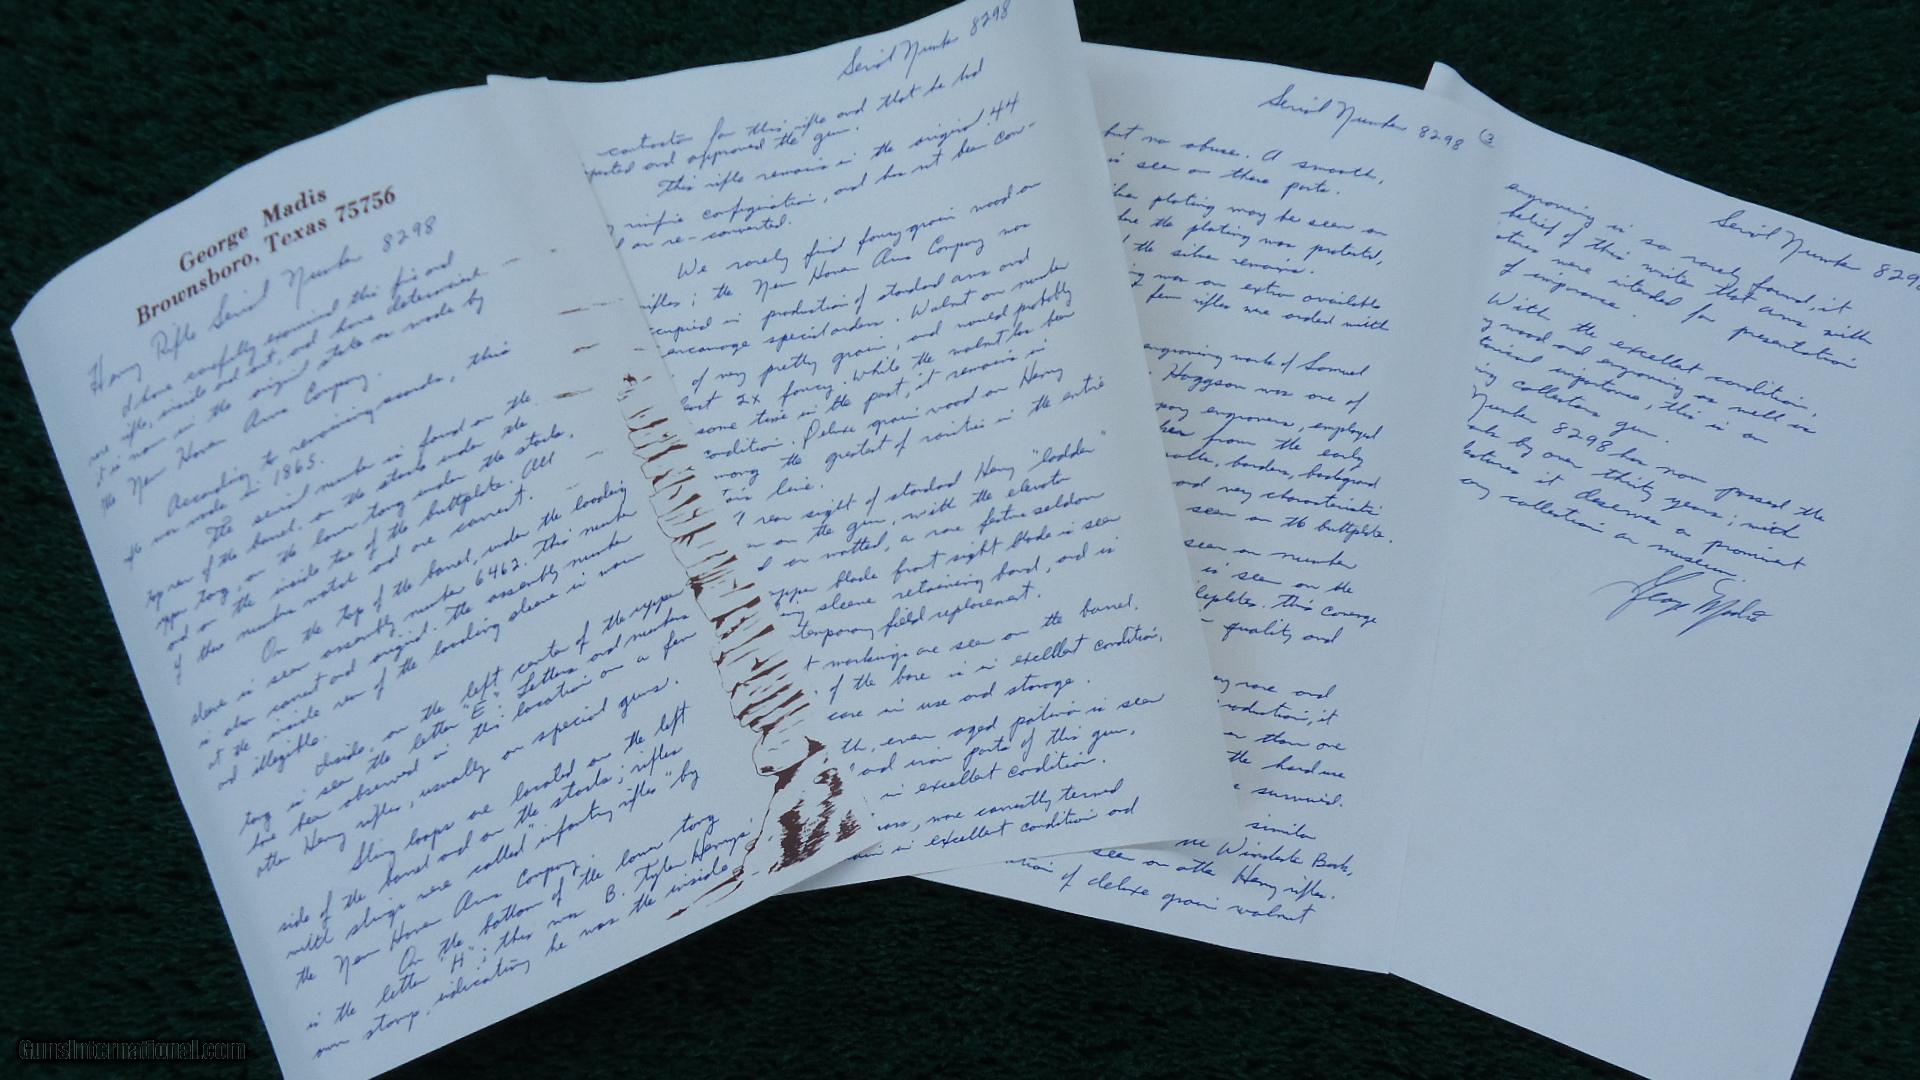 George Madis
Brownsboro, Texas 75756
Henry Rifle Serial Number 8298
I have carefully examined this fine and
rare rifle, inside and out, and have determined
it is now in the original state as made by
the New Haven Arms Company.
According to remaining records, this
rifle was made in 1865.
The serial number is found on the
top rear of the barrel, on the stocks under the
upper tang, on the lower tang under the stocks,
and on the inside toe of the buttplate. All
of these numbers match and are correct.
On the top of the barrel, under the loading
sleeve is seen assembly number 6462. This number
is also correct and original. The assembly number
at the inside rear of the loading sleeve is worn
and illegible.
Inside, on the left center of the upper
tang is seen the letter "E". Letters and numbers
have been observed in this location on a few
other Henry rifles, usually on special guns.
Sling loops are located on the left
side of the barrel and on the stocks; rifles
with slings were called "infantry rifles" by
the New Haven Arms Company.
On the bottom of the lower tang
is the letter "H"; this was B. Tyler Henry's
own stamp, indicating he was the inside
Serial Number 8298
contractor for this rifle and that he had
and approved the gun.
This rifle remains in the original 44
rimfire configuration, and has not been con-
or re-converted.
We rarely find fancy grain wood on
rifles; the New Haven Arms Company was
occupied in production of standard arms and
encourage special orders. Walnut on number
of very pretty grain, and would probably
2X fancy. While the walnut has been
some time in the past, it remains in
condition. Deluxe grain wood on Henry
among the greatest of rarities in the entire
line.
rear sight of standard Henry "ladder"
on the gun, with the elevator
or notted, a rare feature seldom
type blade front sight blade is seen
sleeve retaining band, and is
temporary field replacement.
markings are seen on the barrel.
of the bore is in excellent condition,
care in use and storage.
even aged patina is seen
and iron parts of this gun,
in excellent condition.
more correctly termed
in excellent condition and
Serial Number 8298 3
but no abuse. A smooth,
is seen on these parts.
plating may be seen on
where the plating was protected,
the silver remains.
was an extra available
few rifles were ordered with
engraving work of Samuel
Hoggson was one of
engravers, employed
from the early
borders, background
and very characteristic
seen on the buttplate.
seen on number
is seen on the
This coverage
quality and
rare and
production, it
than one
the hard use
survived.
similar
the Winchester Book,
seen on other Henry rifles.
of deluxe grain walnut
Serial Number 8298
engraving is so rarely found, it
belief of this writer that arms with
features were intended for presentation
of importance.
With the excellent condition,
wood and engraving as well as
historical importance, this is an
collectors gun.
Number 8298 has now passed the
by over thirty years; with
features it deserves a prominent
any collection or museum.
George Madis
GunsInternational.com